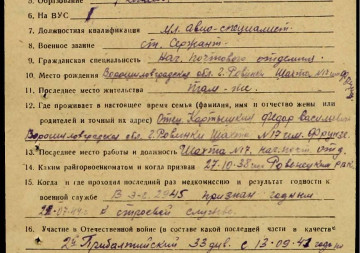 5. Образование
6. На ВУС
7. Должностная квалификация мл. авио-специалист
8. Военное звание ст. Сержант.
9. Гражданская специальность Нач. почтового отделения
10. Место рождения Ворошиловградская обл. г. Ровеньки Шахта
11. Последнее место жительства там-же.
12. Где проживает в настоящее время семья (фамилия, имя и отчество жены или
родителей и точный их адрес) Отец Федор Васильевич
Ворошиловградская обл. г. Ровеньки Шахта №17 им. Фрунзе
13. Последнее место работы и должность Шахта №17. нач. почт. отд.
14. Каким райгорвоенкоматом и когда призван 27-10-38 Ровенецкий РВК
15. Когда и где проходил последний раз медкомиссию и результат годности к
военной службе В 1945 признан годным
к строевой службе.
16. Участие в Отечественной войне (в составе какой последней части и в качестве
2й Прибалтийский 33 див. с 13-09-41 года